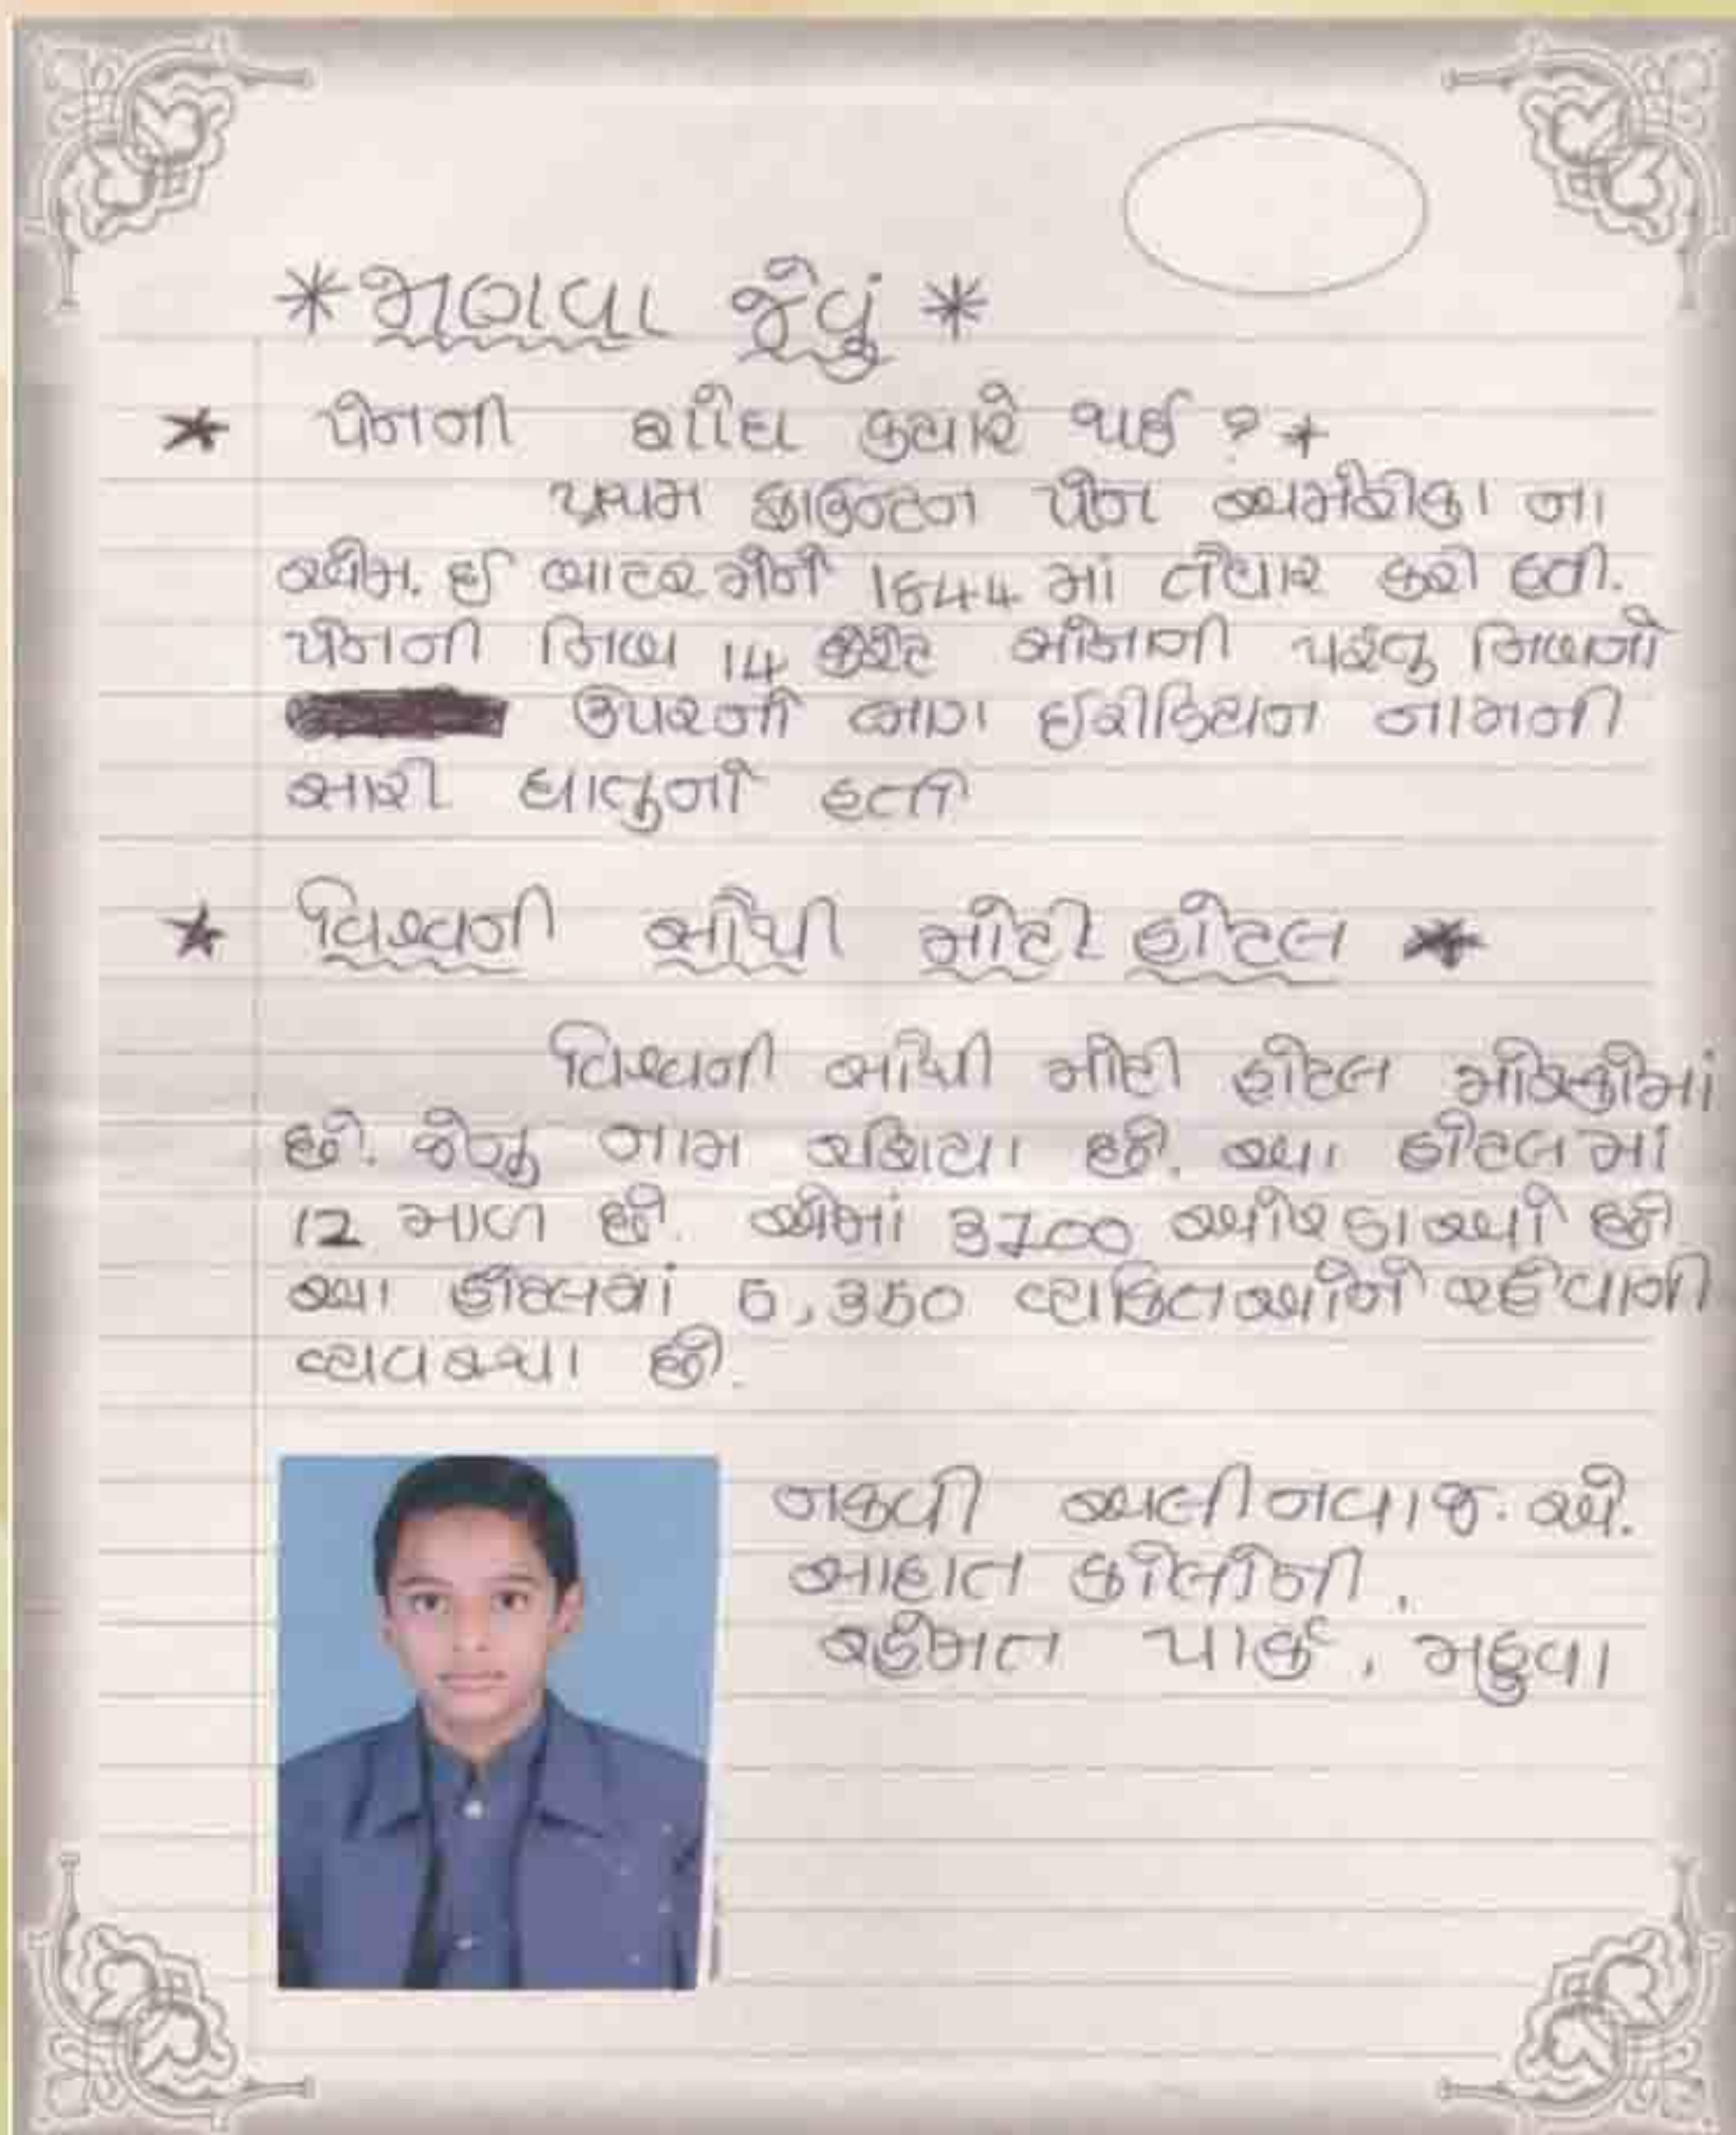 *જાણવા જેવું *
* પેનની શોધ ક્યારે થઈ ? *
પ્રથમ ફાઉન્ટન પેન અમેરીકા ના
એમ. ઈ વાટરમેને 1844 માં તૈયાર કરી હતી.
પેનની નિબ 14 કેરેટ સોનાની પરંતુ નિબનો
ઉપરનો ભાગ ઈરીડિયાન નામની
સારી ધાતુનો હતો
* વિશ્વની સૌથી મોટી હોટલ *
વિશ્વની સૌથી મોટી હોટલ મોસ્કોમાં
છે. જેનુ નામ રશિયા છે. આ હોટલમાં
12 માળ છે. એમાં 3700 ઓરડાઓ છે
આ હોટલમાં 5,350 વ્યકિતઓને રહેવાની
વ્યવસ્થા છે.
નકવી અલીનવાજ. એ.
સાદાત કોલોની,
રહેમત પાર્ક, મહુવા